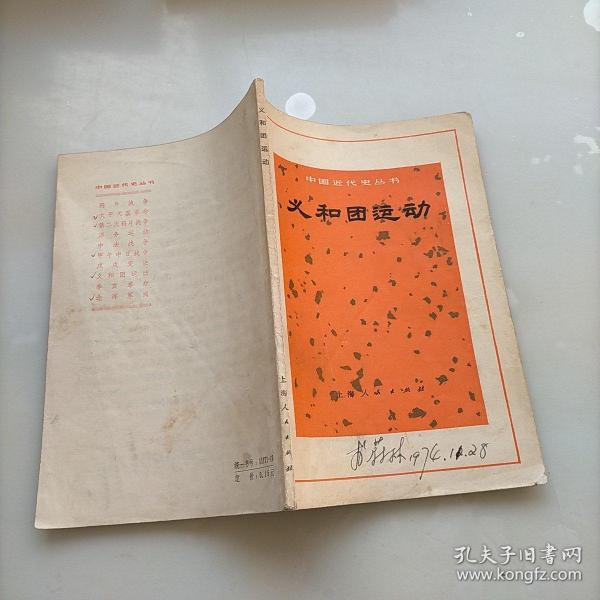 中国近代史丛书
义和团运动
上海人民出版社
1974.11.28
义和团运动
上海人民出版社
中国近代史丛书
鸦片战争
✓太平天国革命
✓第二次鸦片战争
洋务运动
中法战争
✓甲午中日战争
戊戌变法
✓义和团运动
辛亥革命
✓北洋军阀
统一书号：11171·
定价：0.15元
孔夫子旧书网
www.kongfz.com